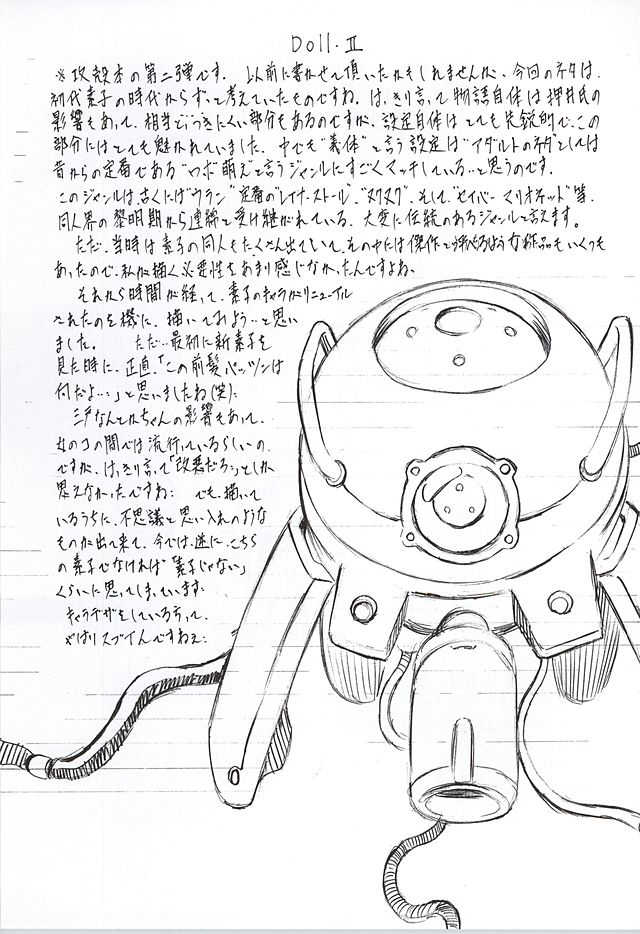 Doll.Ⅱ
※攻殻本の第二弾です。以前に書かせて頂いたかもしれませんが、今回のネタは、
初代素子の時代からずっと考えていたものですね。はっきり言って物語自体は押井氏の
影響もあって、相当どうきにくい部分もあるのですが、設定自体はとても先鋭的で、この
部分にはとても魅かれていました。中でも"義体"と言う設定は"アダルトのネタ"としては
昔からの定番である"ロボ萌え"と言うジャンルにすごくマッチしている…と思うのです。
このジャンルは、古くには"ウラン"定番の"レイナ・ストール"、"ヌクヌク"、そして、"セイバーマリオネット"等、
同人界の黎明期から連綿と受け継がれている、大変に伝統のあるジャンルと言えます。
ただ、当時は素子の同人もたくさん出ていて、その中には傑作と呼べるような作品もいくつも
あったので、私が描く必要性をあまり感じなかったんですよね。
それから時間が経って、素子のキャラがリニューアル
されたのを機に、描いてみよう…と思い
ました。ただ…最初に新素子を
見た時に、正直、「この前髪パッツンは
何だよ…」と思いましたね(笑)
三戸なんとかちゃんの影響もあって、
女のコの間では流行っているらしいの
ですが、はっきり言って「改悪だろ」としか
思えなかったですね。でも、描いて
いるうちに、不思議と思い入れのような
ものが出て来て、今では、逆に、こちら
の素子でなければ「素子じゃない」
くらいに思ってしまっています。
キャラデザをしている方って、
やはりスゴイんですねぇ。